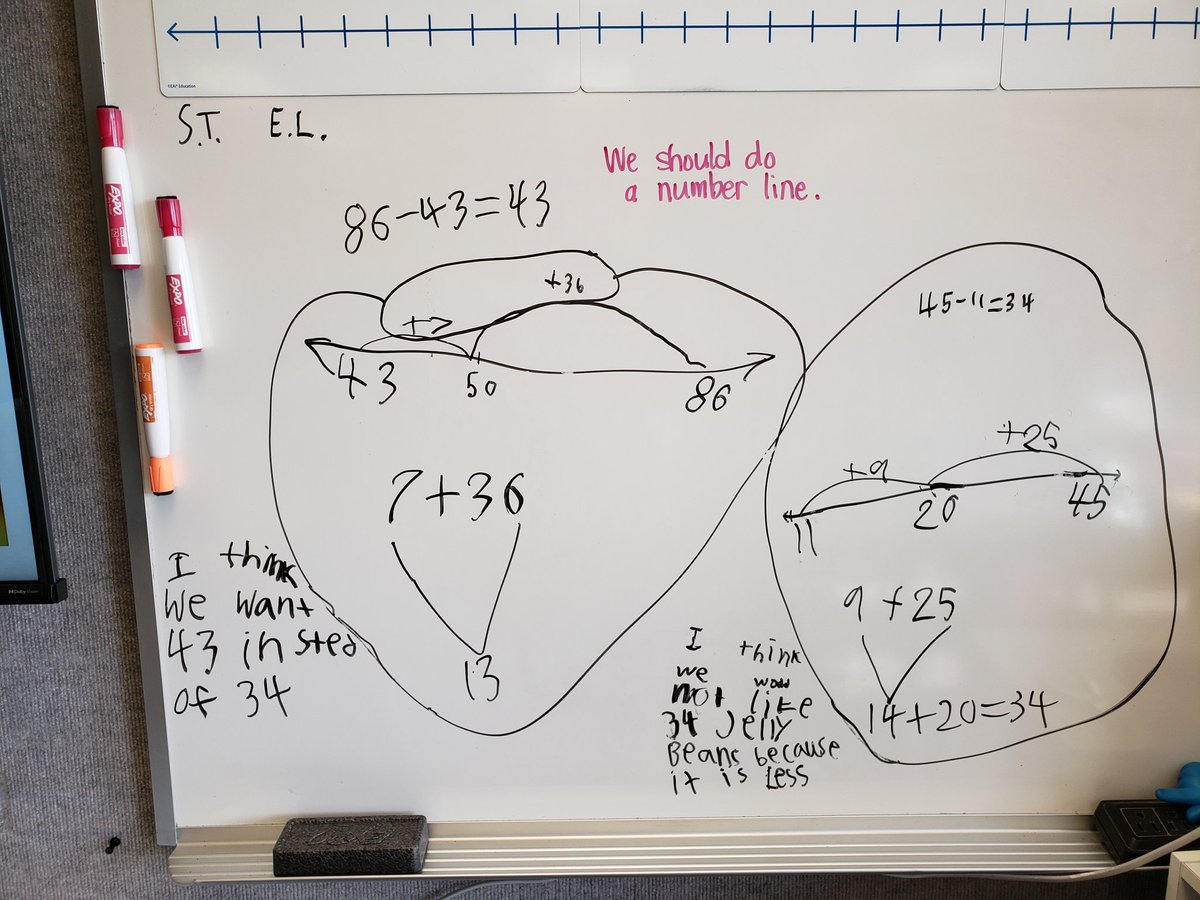 ©EAI® Education
S.T. E.L.
We should do
a number line.
86-43=43
+36
+7
43 50 86
7+36
13
I think
We want
43 in sted
of 34
45-11=34
+25
+9
11 20 45
9+25
14+20=34
I think
we woud
not like
34 Jelly
Beans because
it is Less
EXPO
EXPO